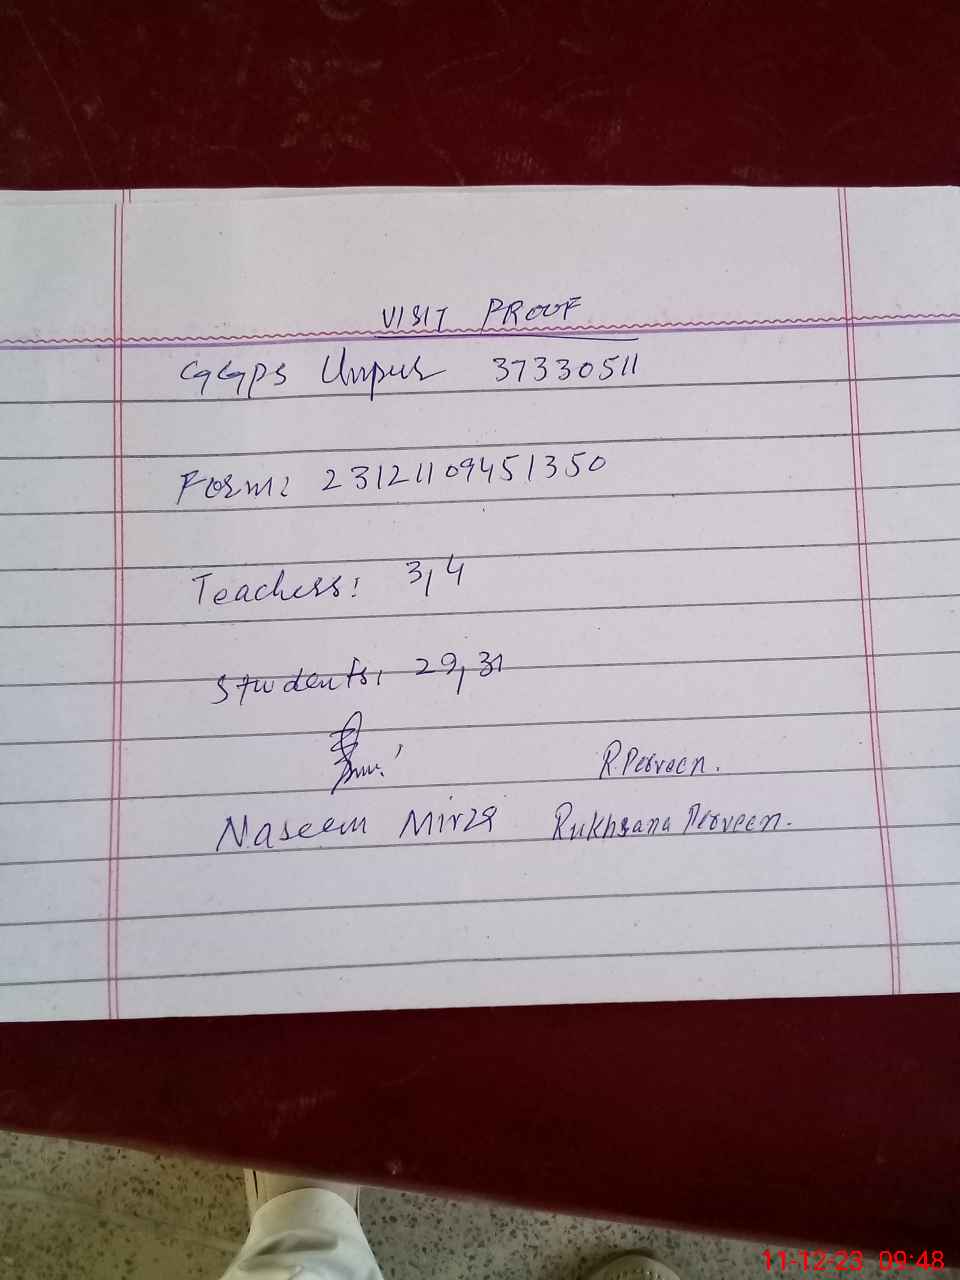 VISIT PROOF
GGPS Unpur 37330511
Form: 23121109451350
Teachers: 3,4
Students, 29,31
R Perveen.
Naseem Mirza Rukhsana Perveen.
11-12-23 09:48